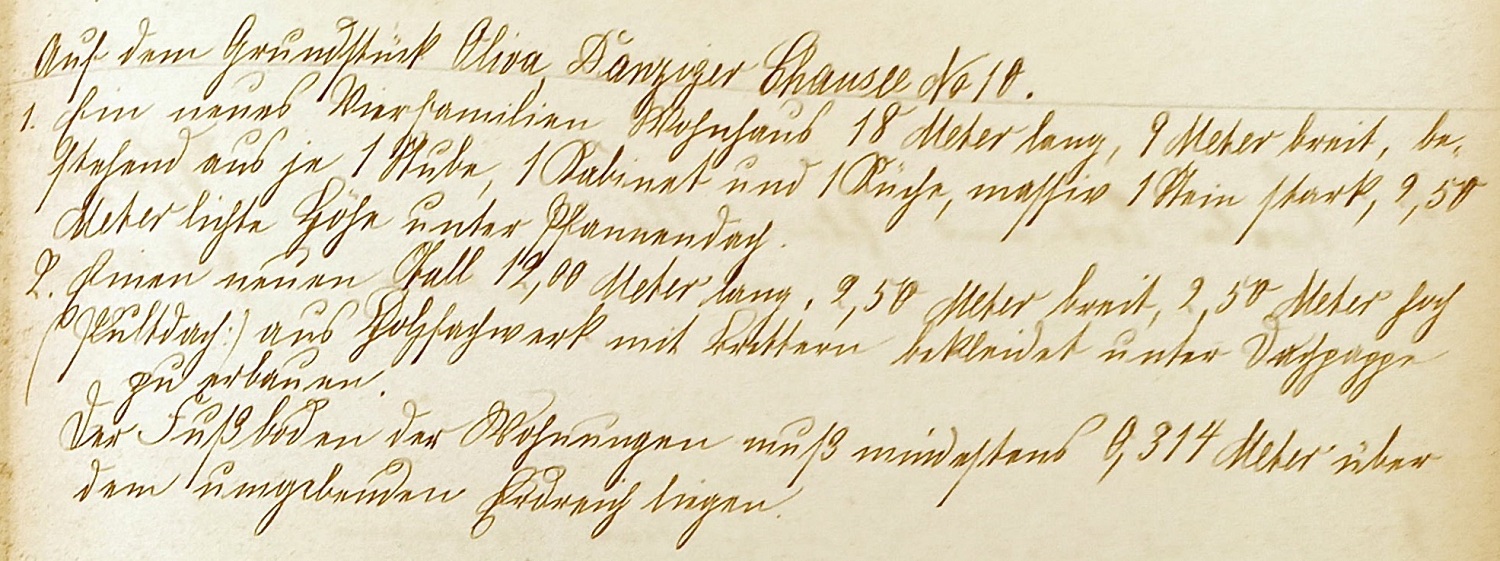 Auf dem Grundstück Oliva, Danziger Chausee No 10.
1. Ein neues Vierfamilien Wohnhaus 18 Meter lang, 9 Meter breit, be-
stehend aus je 1 Stube, 1 Kabinet und 1 Küche, massiv 1 Stein stark, 2,50
Meter lichte Höhe unter Pfannendach.
2. Einen neuen Stall 12,00 Meter lang, 2,50 Meter breit, 2,50 Meter hoch
(Pultdach:) aus Holzfachwerk mit Brettern bekleidet unter Dachpappe
zu erbauen.
Der Fußboden der Wohnungen muß mindestens 0,314 Meter über
dem umgebenden Erdreich liegen.